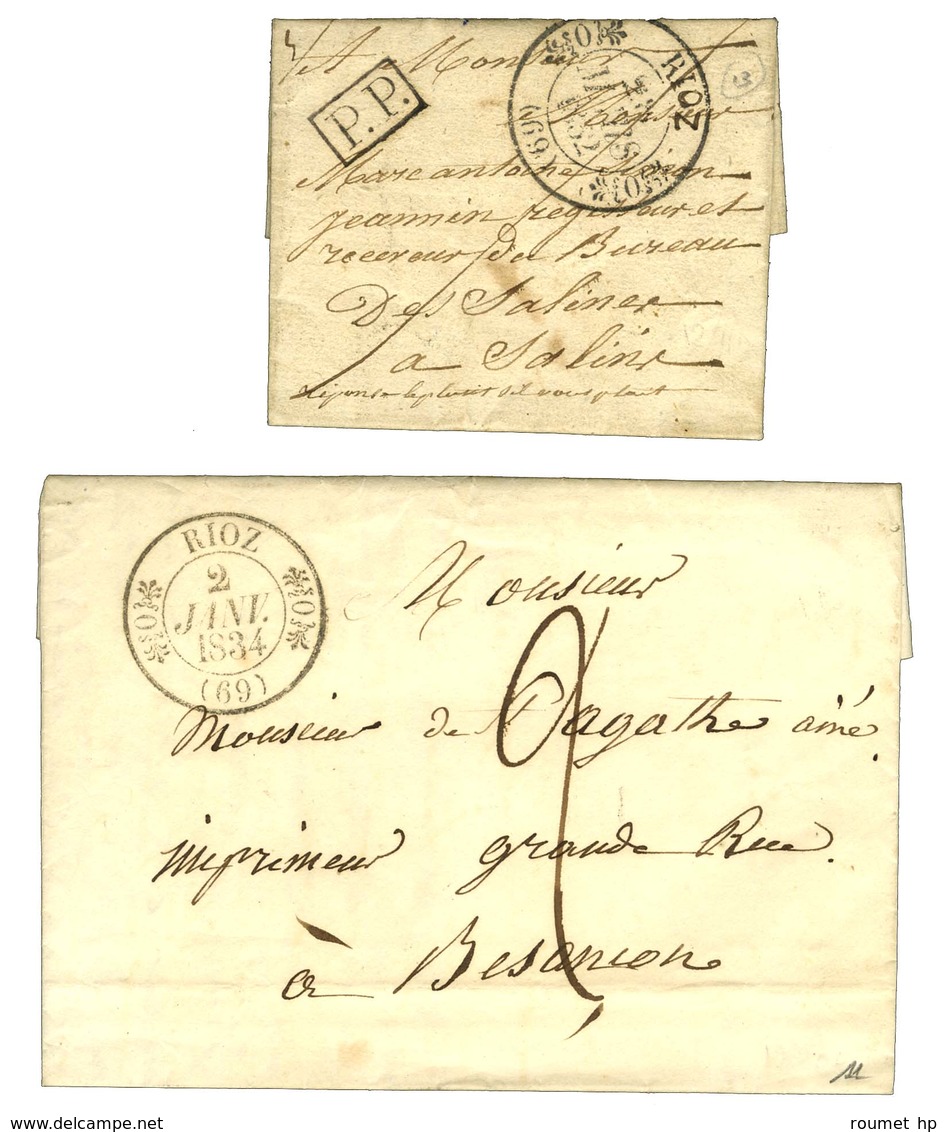 A Monsieur
P.P.
RIOZ
MARS
(69)
Monsieur
Marc antoine
jeannin regisseur et
receveur du Bureau
Des Salines
a Salins
réponse sil vous plait
RIOZ
2
JANV.
1834
(69)
Monsieur
2
Monsieur de St agathe ainé
imprimeur grande Rue.
à Besancon
www.delcampe.net
roumet hp